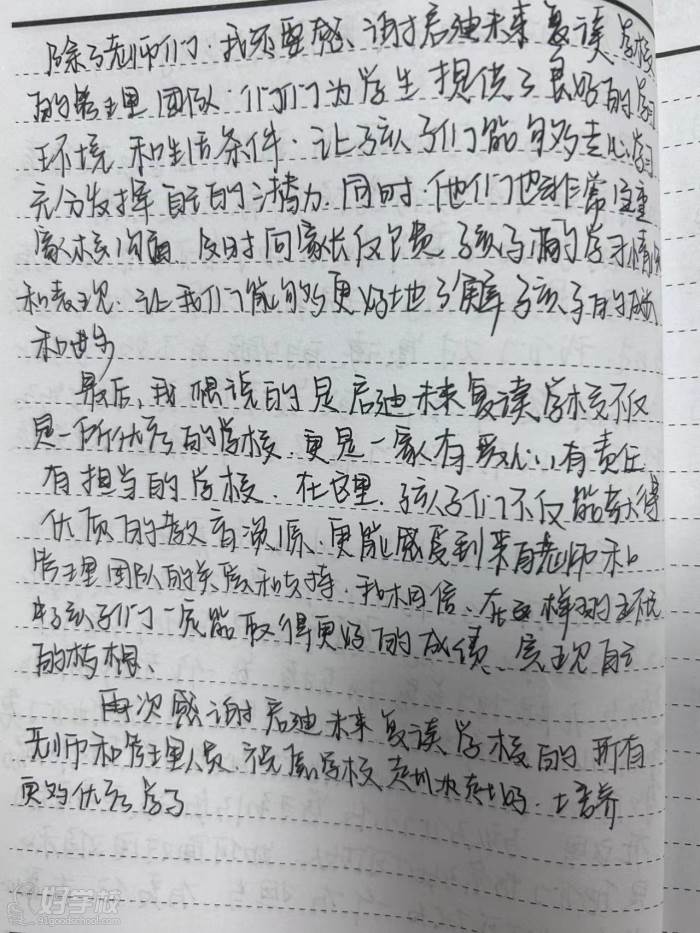 除了老师们.我还要感、谢启迪未来复读学校
的管理团队.他们为学生提供了良好的学习
环境和生活条件.让孩子们能够专心学习
充分发挥自己的潜力.同时.他们也非常注重
家校沟通 及时向家长反馈孩子的学习情况
和表现.让我们能够更好地了解孩子的成长
和进步
最后,我想说的是启迪未来复读学校不仅
是一所优秀的学校.更是一家有爱心,有责任
有担当的学校.在这里.孩子们不仅能获得
优质的教育资源.更能感受到来自老师和
管理团队的关爱和支持.我相信、在这样的环境
中孩子们一定能取得更好的成绩、实现自己
的梦想、
再次感谢启迪未来复读学校的所有
老师和管理人员.祝愿学校越办越好.培养
更多优秀学子
好学校
91goodschool.com